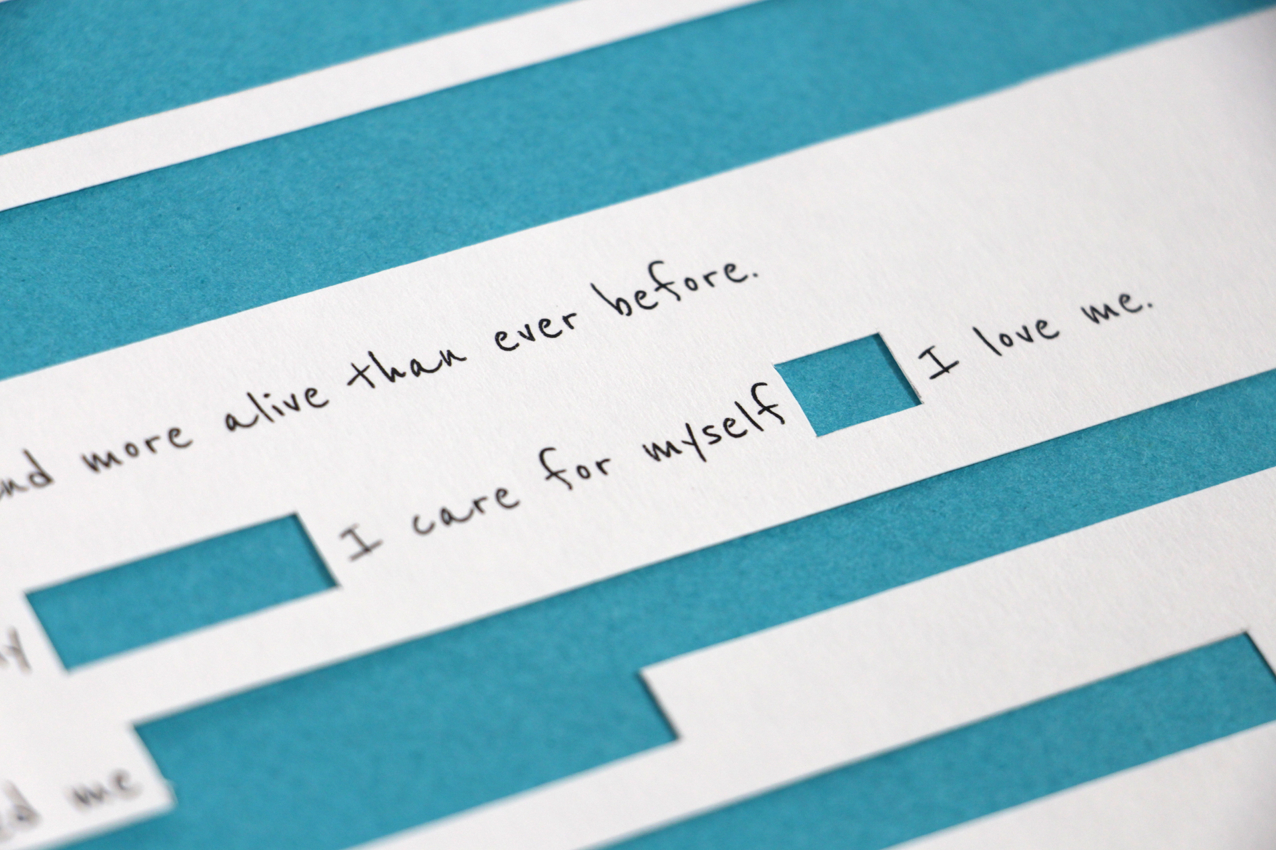 and more alive than ever before.
I care for myself I love me.
me